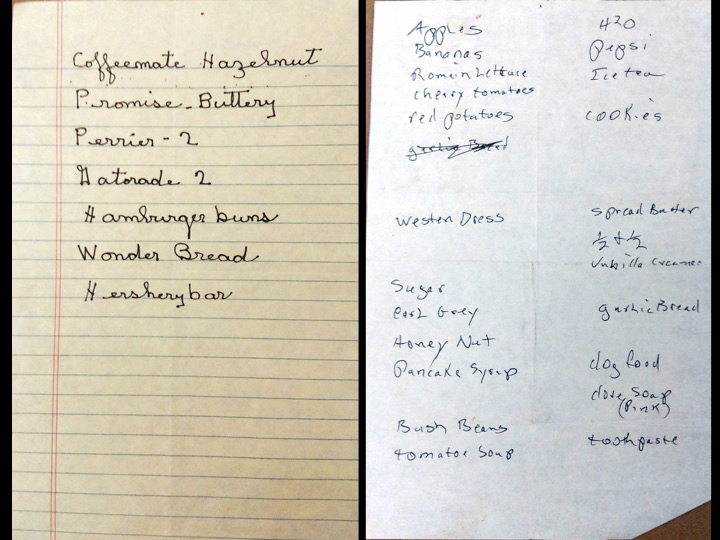 Coffeemate Hazelnut
Promise-Buttery
Perrier - 2
Gatorade 2
Hamburger buns
Wonder Bread
Hersherybar
Apples
Bananas
Romein Lettuce
cherry tomatoes
red potatoes
garlic Bread
Westen Dress
Sugar
earl Grey
Honey Nut
Pancake Syrup
Bush Beans
tomatoe Soup
H2O
Pepsi
Ice tea
cookies
Spread Butter
½ + ½
Vanilla Creamer
garlic Bread
dog food
dove Soap
(Pink)
toothpaste